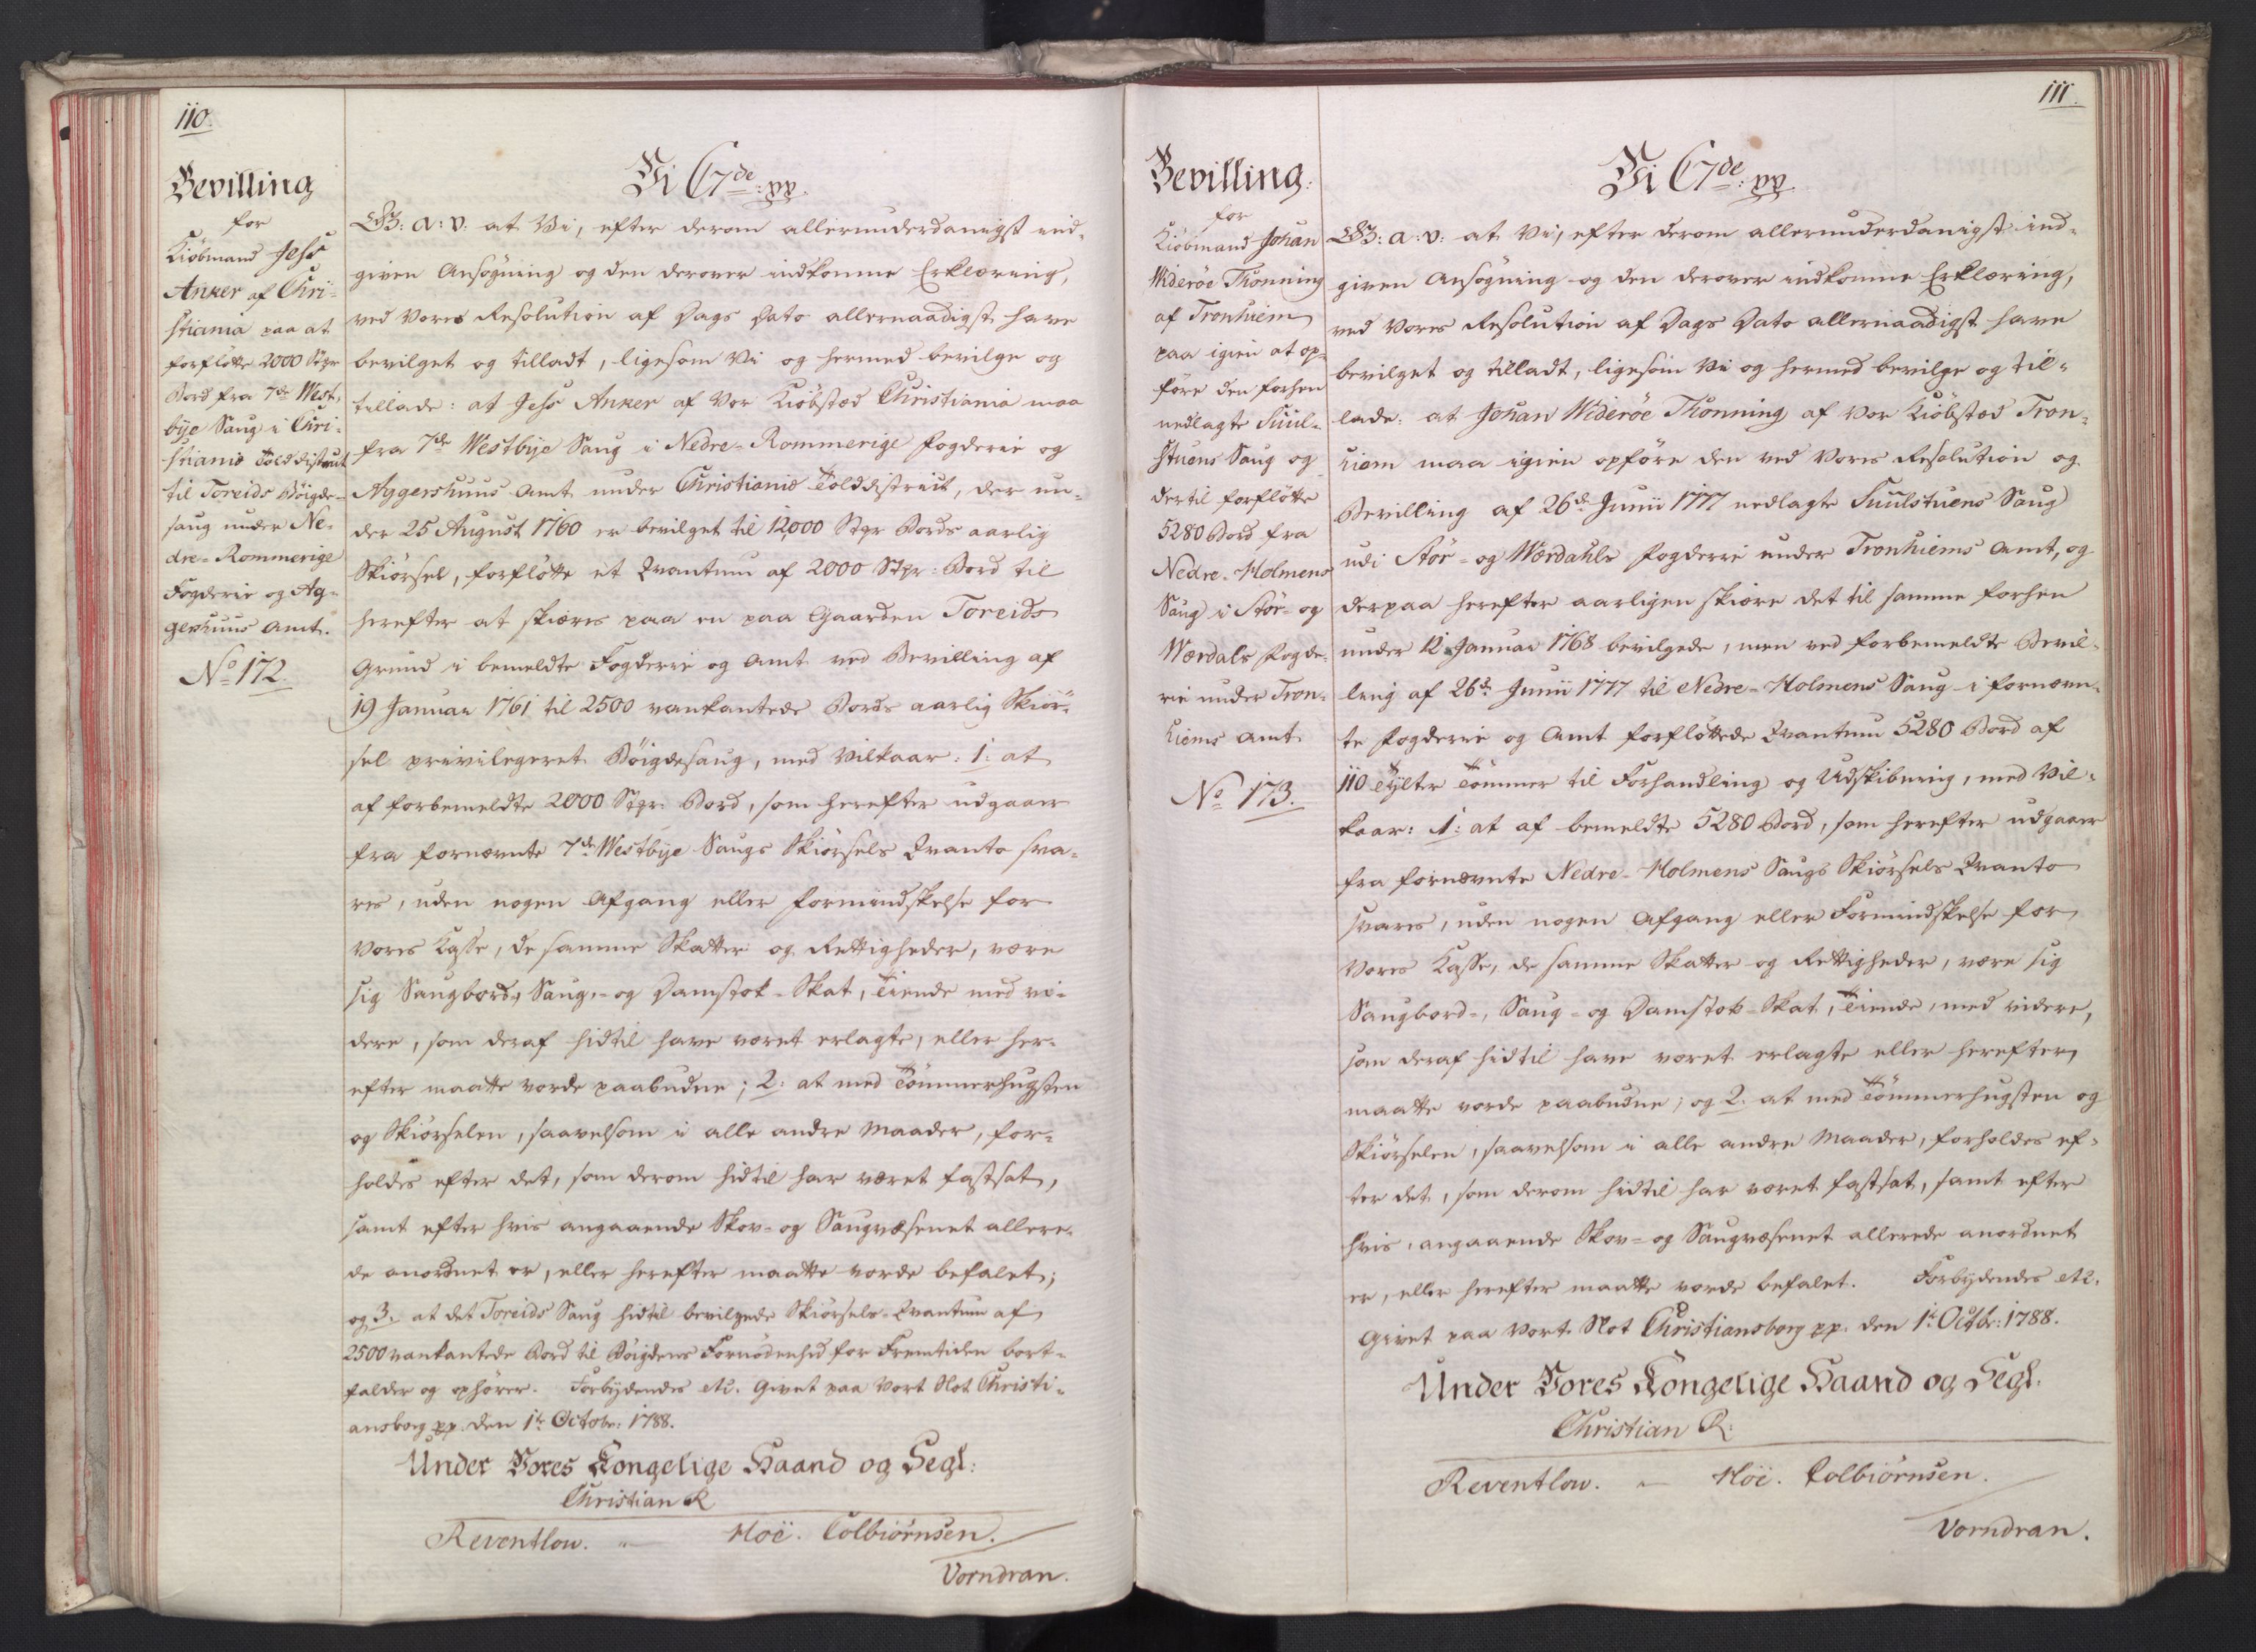 110.
Bevilling
for
Kiöbmand Jess
Anker af Chri-
stiania paa at
forflötte 2000 Stpr
Bord fra 7de West-
bye Saug i Chri-
stianiæ Tolddistrict
til Toreids Böigde-
saug under Ne-
dre-Rommerige
Fogderie og Ag-
gershuus Amt.
No 172.
Vi C7de: pp.
G: a: v: at Vi, efter derom allerunderdanigst ind-
given Ansögning og den derover indkomne Erklæring,
ved Vores Resolution af Dags Dato allernaadigst have
bevilget og tilladt, ligesom Vi og hermed bevilge og
tillade: at Jess Anker af Vor Kiöbstæd Christiania maa
fra 7de Westbye Saug i Nedre-Rommerige Fogderie og
Aggershuus Amt under Christianiæ Tolddistrict, der un-
der 25 August 1760 er bevilget til 12,000 Stpr Bords aarlig
Skiörsel, forflötte et Qvantum af 2000 Stpr: Bord til
herefter at skiæres paa en paa Gaarden Toreids
Grund i bemeldte Fogderie og Amt ved Bevilling af
19 Januar 1761 til 2500 vankantede Bords aarlig Skiör-
sel privilegeret Böigdesaug, med Vilkaar: 1: at
af forbemeldte 2000 Stpr: Bord, som herefter udgaaer
fra fornævnte 7de Westbye Saugs Skiörsels Qvanto sva-
res, uden nogen Afgang eller Formindskelse for
Vores Kasse, de samme Skatter og Rettigheder, være
sig Saugbord-, Saug- og Damstok-Skat, Tiende med vi-
dere, som deraf hidtil have været erlagte, eller her-
efter maatte vorde paabudne; 2: at med Tömmerhugsten
og Skiörselen, saavelsom i alle andre Maader, for-
holdes efter det, som derom hidtil har været fastsat,
samt efter hvis angaaende Skov- og Saugvæsenet allere-
de anordnet er, eller herefter maatte vorde befalet;
og 3. at det Toreids Saug hidtil bevilgede Skiörsels-Qvantum af
2500 vankantede Bord til Böigdens Fornödenhed for Fremtiden bort-
falder og ophörer. Forbydendes etc. Givet paa Vort Slot Christi-
ansborg pp. den 1te Octobr: 1788.
Under Vores Kongelige Haand og Segl:
Christian R
Reventlow.
Höe. Colbiørnsen.
Vorndran.
111.
Bevilling.
for
Kiöbmand Johan
Wideröe Thonning
af Tronhiem
paa igien at op-
före den forhen
nedlagte Suul-
stuens Saug og
dertil forflötte
5280 Bord fra
Nedre-Holmens
Saug i Stör- og
Wærdals Fogde-
rie under Tron-
hiems Amt.
No 173.
Vi C7de: pp.
G: a: v: at Vi, efter derom allerunderdanigst ind-
given Ansögning og den derover indkomne Erklæring,
ved Vores Resolution af Dags Dato allernaadigst have
bevilget og tilladt, ligesom Vi og hermed bevilge og til-
lade: at Johan Wideröe Thonning af Vor Kiöbstæd Tron-
hiem maa igien opföre den ved Vores Resolution og
Bevilling af 26de Junii 1777 nedlagte Suulstuens Saug
udi Stör- og Wærdahls Fogderie under Tronhiems Amt, og
derpaa herefter aarligen skiære det til samme forhen
under 12 Januar 1768 bevilgede, men ved forbemeldte Bevil-
ling af 26de Junii 1777 til Nedre-Holmens Saug i fornævn-
te Fogderie og Amt forflöttede Qvantum 5280 Bord af
110 Tylter Tömmer til Forhandling og Udskibning, med Vil-
kaar: 1: at af bemeldte 5280 Bord, som herefter udgaaer
fra fornævnte Nedre-Holmens Saugs Skiörsels Qvanto
svares, uden nogen Afgang eller Formindskelse for
Vores Kasse, de samme Skatter og Rettigheder, være sig
Saugbord-, Saug- og Damstok-Skat, Tiende, med videre,
som deraf hidtil have været erlagte eller herefter
maatte vorde paabudne; og 2. at med Tömmerhugsten og
Skiörselen, saavelsom i alle andre Maader, forholdes ef-
ter det, som derom hidtil har været fastsat, samt efter
hvis, angaaende Skov- og Saugvæsenet allerede anordnet
er, eller herefter maatte vorde befalet. Forbydendes etc.
Givet paa Vort Slot Christiansborg pp. den 1te Octbr: 1788.
Under Vores Kongelige Haand og Segl.
Christian R.
Reventlow. Höe. Colbiörnsen.
Vorndran.